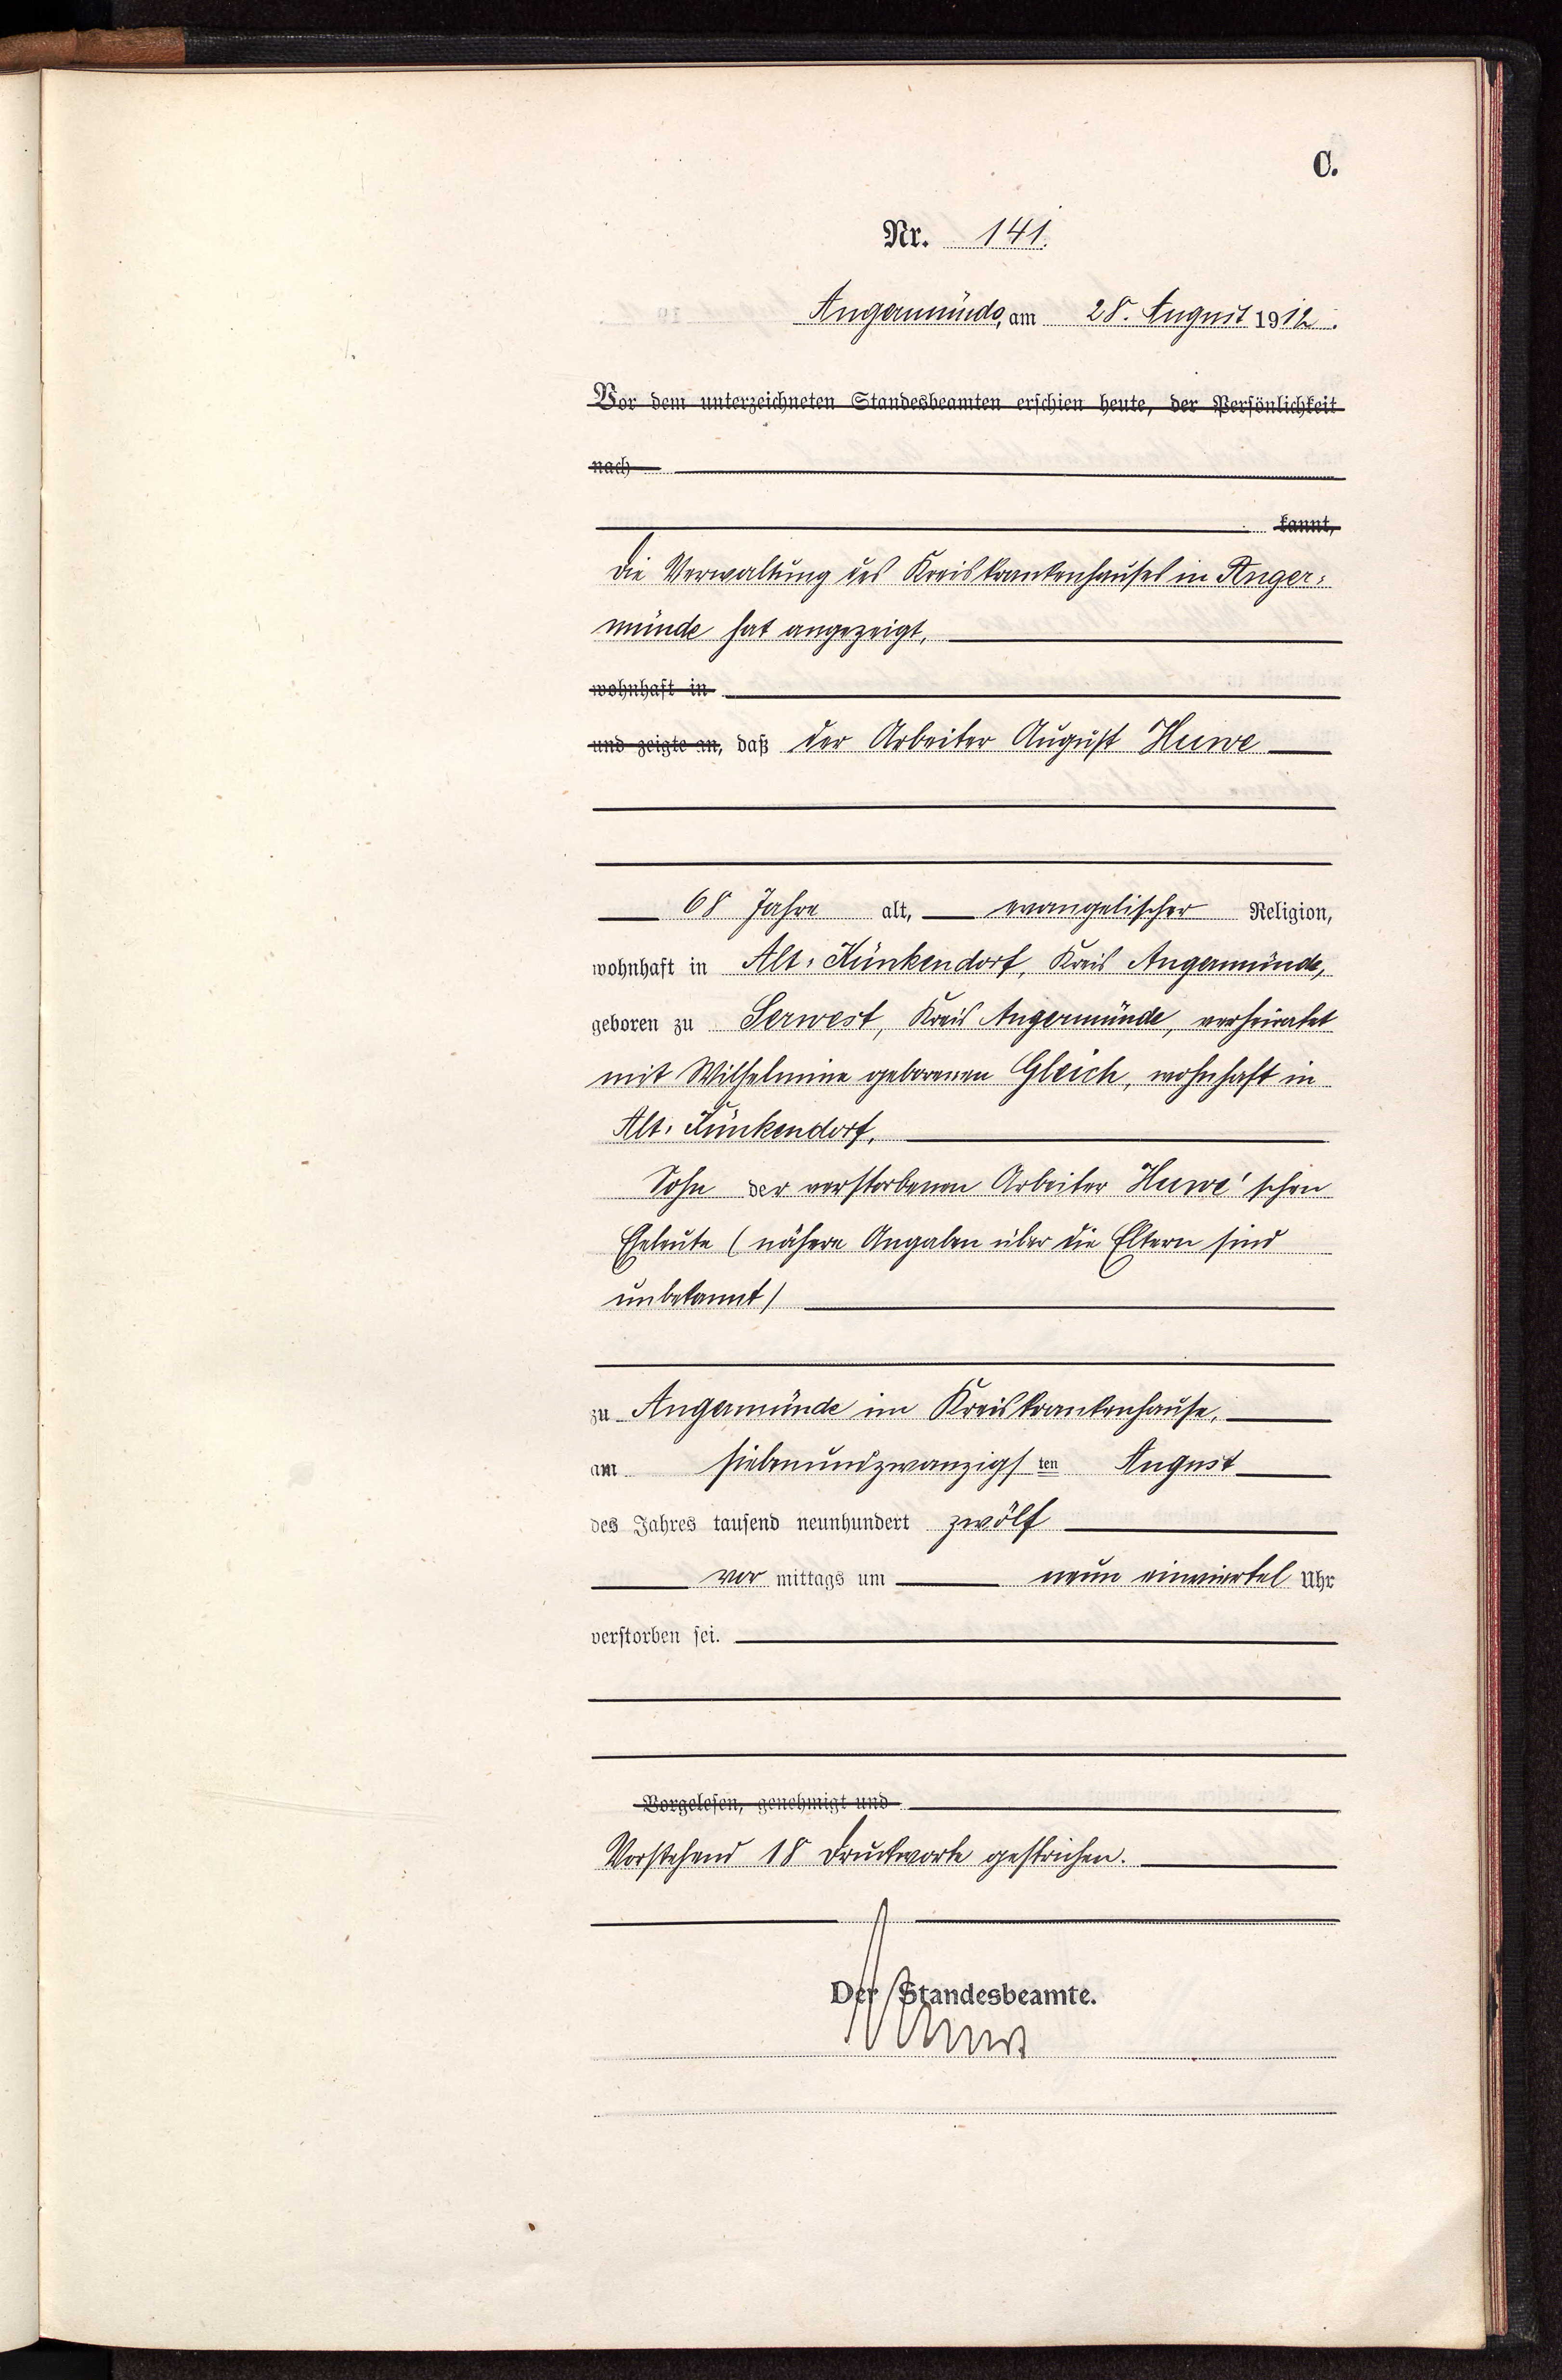 C.
Nr. 141.
Angermünde, am 28. August 1912.
Vor dem unterzeichneten Standesbeamten erschien heute, der Persönlichkeit
nach
kannt,
Die Verwaltung des Kreiskrankenhauses in Anger-
münde hat angezeigt,
wohnhaft in
und zeigte an, daß der Arbeiter August Huwe
68 Jahre alt, evangelischer Religion,
wohnhaft in Alt-Künkendorf, Kreis Angermünde,
geboren zu Serwest, Kreis Angermünde, verheiratet
mit Wilhelmine geborenen Gleich, wohnhaft in
Alt-Künkendorf,
Sohn der verstorbenen Arbeiter Huwe'schen
Eheleute (nähere Angaben über die Eltern sind
unbekannt)
zu Angermünde im Kreiskrankenhause,
am siebenundzwanzigsten August
des Jahres tausend neunhundert zwölf
vormittags um neun einviertel Uhr
verstorben sei.
Vorgelesen, genehmigt und
Vorstehend 18 Druckworte gestrichen.
Der Standesbeamte.